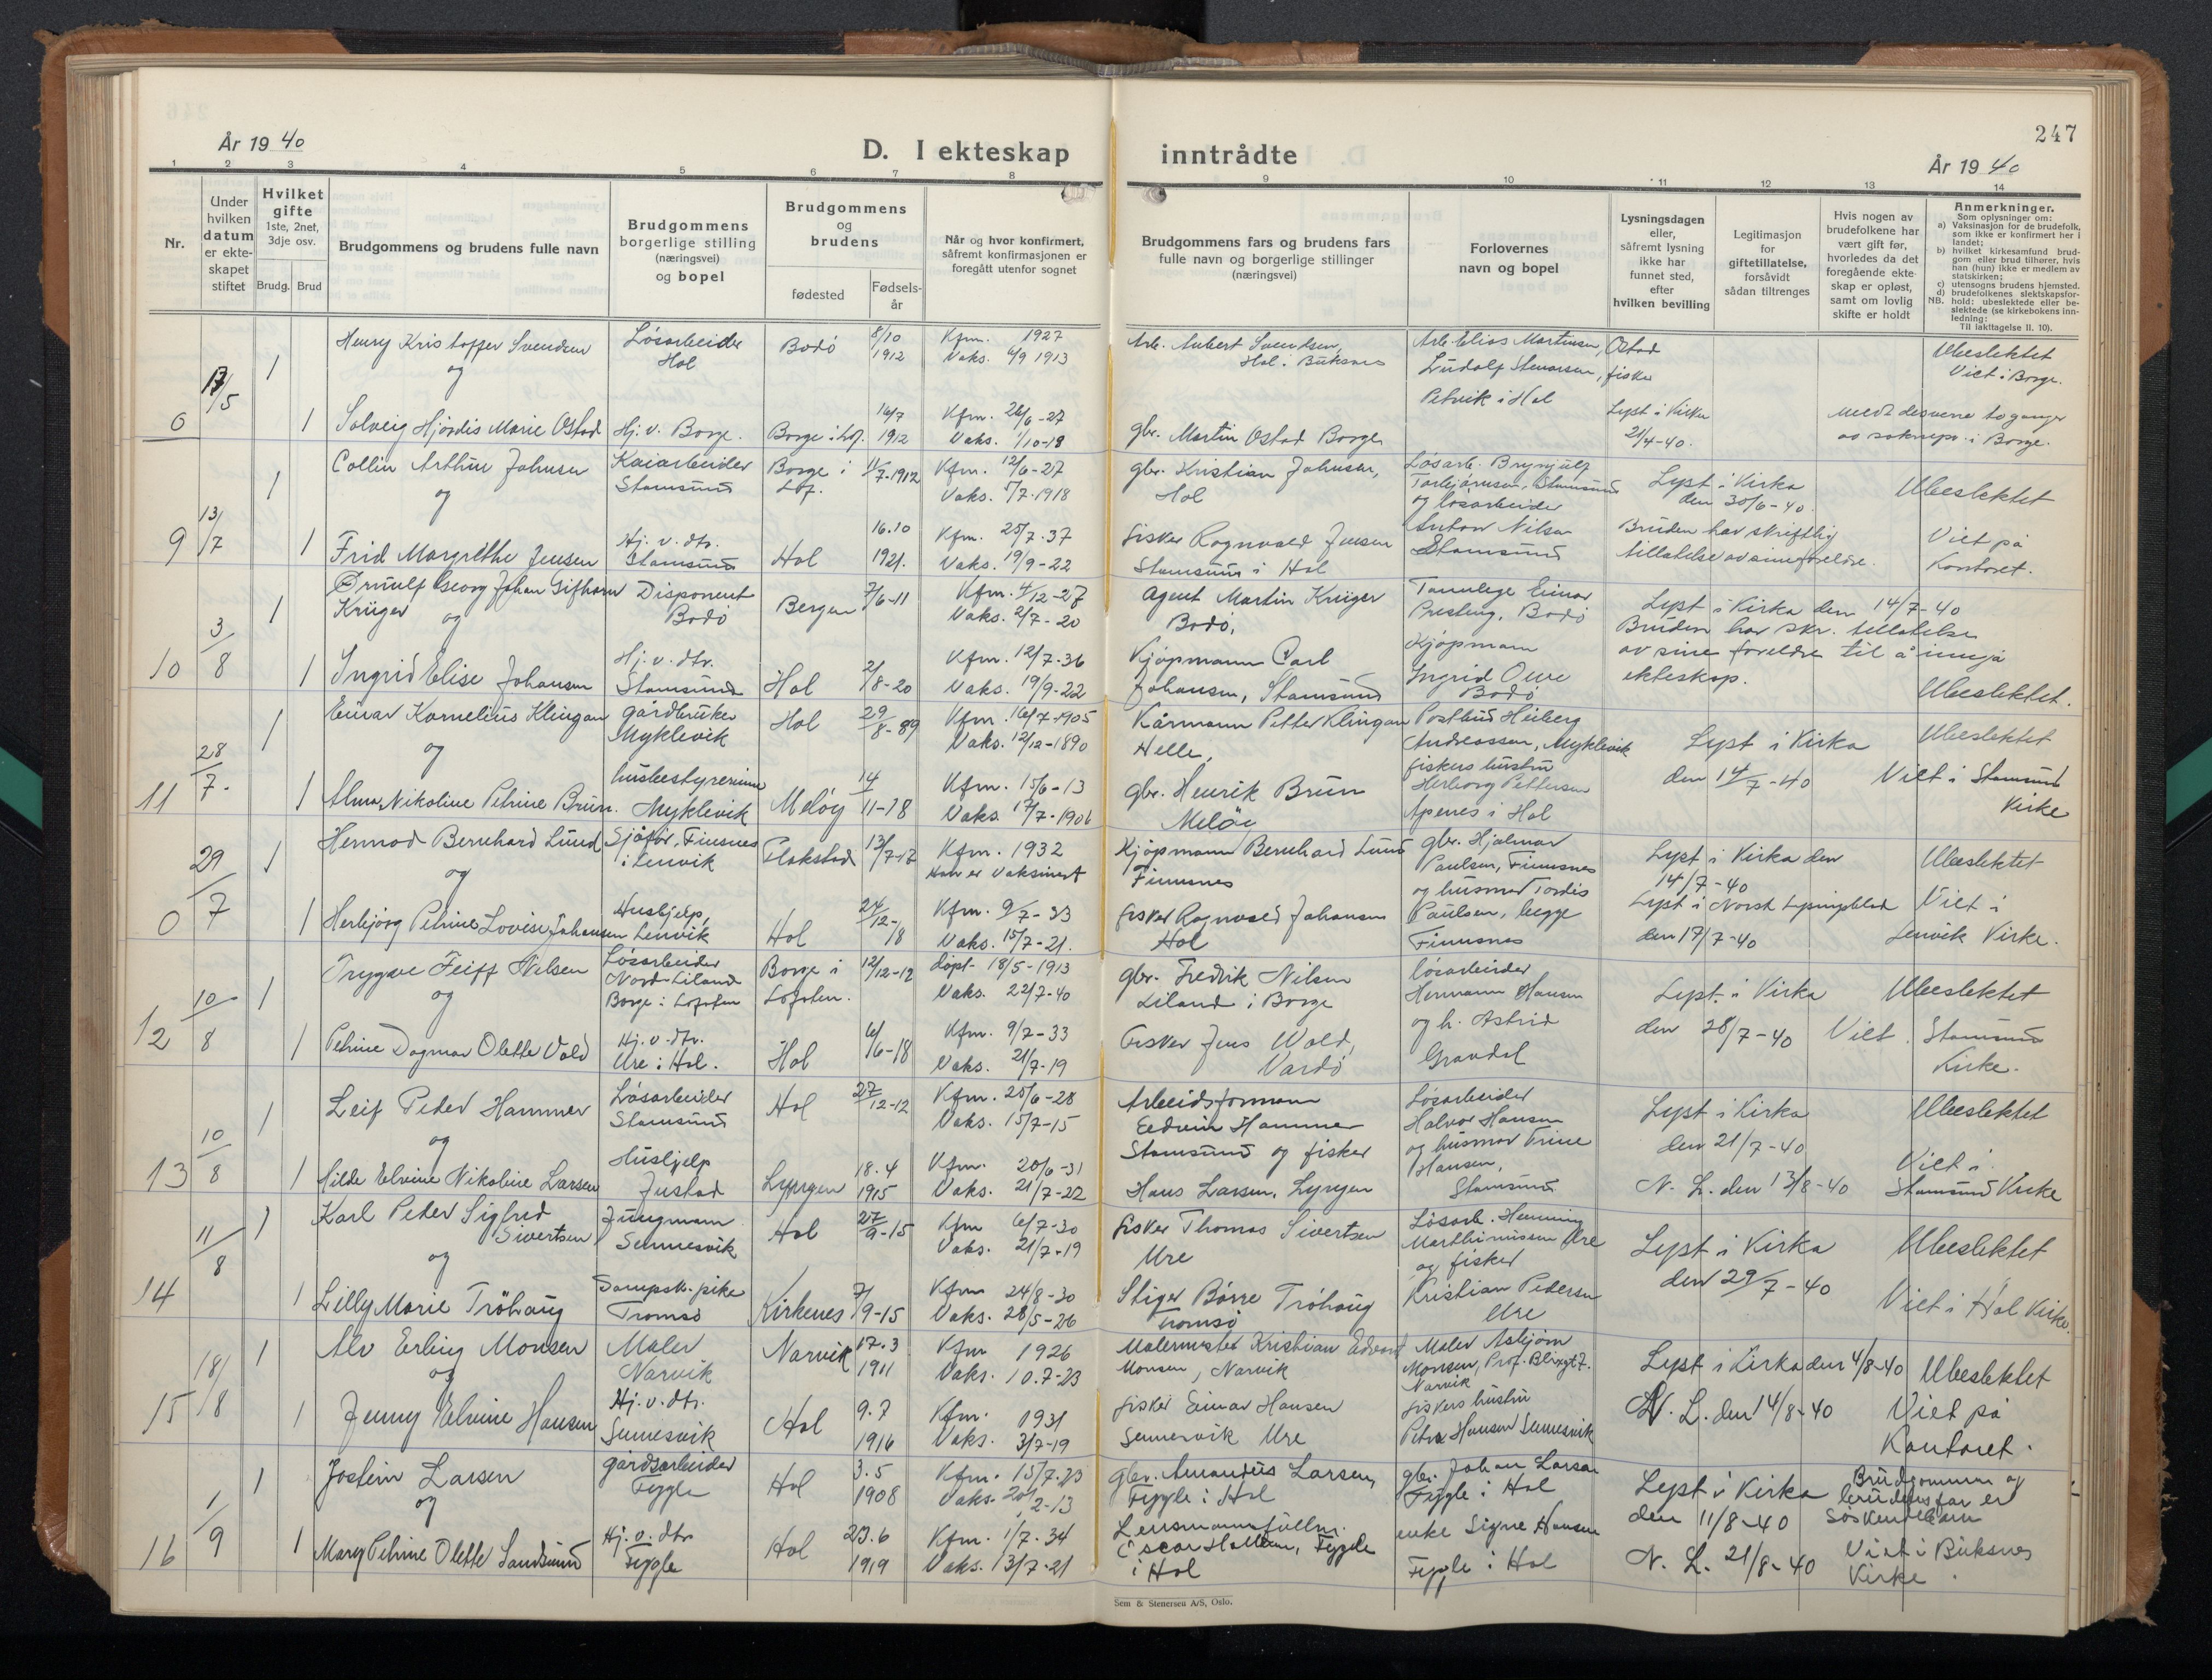 År 1940
D. I ekteskap inntrådte
247
År 1940
1 2 3 4 5 6 7 8 9 10 11 12 13 14
Nr.
Under hvilken datum er ekteskapet stiftet
Hvilket gifte 1ste, 2net, 3dje osv.
Brudg. Brud
Brudgommens og brudens fulle navn
Brudgommens borgerlige stilling (næringsvei) og bopel
Brudgommens og brudens
fødested
Fødselsår
Når og hvor konfirmert, såfremt konfirmasjonen er foregått utenfor sognet
Brudgommens fars og brudens fars fulle navn og borgerlige stillinger (næringsvei)
Forlovernes navn og bopel
Lysningsdagen eller, såfremt lysning ikke har funnet sted, efter hvilken bevilling
Legitimasjon for giftetillatelse, forsåvidt sådan tiltrenges
Hvis nogen av brudefolkene har vært gift før, hvorledes da det foregående ekteskap er opløst, samt om lovlig skifte er holdt
Anmerkninger.
Som oplysninger om:
a) Vaksinasjon for de brudefolk, som ikke er konfirmert her i landet;
b) hvilket kirkesamfund brudgom eller brud tilhører, hvis han (hun) ikke er medlem av statskirken;
c) utensogns brudens hjemsted.
d) brudefolkenes slektskapsforhold: ubeslektede eller beslektede (se kirkebokens innledning:
NB.
Til iakttagelse II. 10).
0 1 Henry Kristoffer Svendsen Løsarbeider Hol Bodø 8/10 1912 Kfm. 1927 Vaks. 6/9 1913 Arb. Aubert Svendsen, Hol i Buksnes Arb. Elias Martinsen, Ostad Ludolf Stenersen, fisker Petvik i Hol Ubeslektet Viet i Borge.
og
1 Solveig Hjørdis Marie Ostad Hj. v. Borge. Borge i Lof. 16/7 1912 Kfm. 26/6-27 Vaks. 1/10-18 gbr. Martin Ostad Borge Lyst i Kirka 21/4-40. Meldt desverre to ganger av soknepr. i Borge.
9 13/7 1 Collin Arthur Johnsen Kaiarbeider Stamsund Borge i Lof. 11/7-1912 Kfm. 12/6-27 Vaks. 5/7-1918 gbr. Kristian Johnsen, Hol Løsarb. Brynjulf Torbjørnsen, Stamsund og løsarbeider Lyst i Kirka den 30/6-40. Ubeslektet
og
1 Frid Margrethe Jensen Hj. v. dtr. Stamsund Hol 16.10 1921. Kfm. 25/7-37 Vaks. 19/9-22 fisker Ragnvald Jensen Stamsund i Hol Anton Nilsen Stamsund Bruden har skriftlig tillatelse av sine foreldre. Viet på Kontoret.
10 3/8 1 Ørnulf Georg Johan Gifhorn Krüger Disponent Bodø Bergen 7/6-11 Kfm. 4/12-27 Vaks. 2/7-20 agent Martin Krüger Bodø, Tannlege Einar Presteng, Bodø Lyst i Kirka den 14/7-40
og
1 Ingrid Elise Johansen Hj. v. dtr. Stamsund Hol 2/8-20 Kfm. 12/7-36 Vaks. 19/9-22 Kjøpmann Carl Johansen, Stamsund Kjøpmann Ingrid Owe Bodø Bruden har skr. tillatelse av sine foreldre til å inngå ekteskap. Ubeslektet.
11 28/7. 1 Einar Kornelius Klingan gårdbruker Myklevik Hol 29/8-89 Kfm. 16/7-1905 Vaks. 12/12-1890 Kårmann Petter Klingan Helle, Postbud Heiberg Andreassen, Myklevik Lyst i Kirka den 14/7-40 Ubeslektet
og
1 Alma Nikoline Petrine Brun. husbestyrerinne Myklevik Meløy 14/11-98 Kfm. 15/6-13 Vaks. 17/7-1906 gbr. Henrik Brun Meløy fiskers hustru Herborg Pettersen Apenes i Hol Viet i Stamsund Kirke
0 29/7 1 Hermod Bernhard Lund Sjåfør, Finsnes i Lenvik Flakstad 13/7-17 Kfm. 1932 Han er Vaksinert Kjøpmann Bernhard Lund Finnsnes gbr. Hjalmar Paulsen, Finnsnes Lyst i Kirka den 14/7-40 Ubeslektet
og
1 Herbjørg Petrine Lovise Johansen Husbjelp, Lenvik Hol 24/12-18 Kfm. 9/7-33 Vaks. 15/7-21. fisker Ragnvald Johansen Hol og husmor Tordis Paulsen, begge Finnsnes Lyst i Norsk Lysingsblad den 17/7-40 Viet i Lenvik Kirke.
12 10/8 1 Trygve Feiff Nilsen Løsarbeider Nord-Liland Borge i Lofoten Borge i Lofoten. 12/12-12 døpt 18/5-1913 Vaks. 22/7-40 gbr. Fredrik Nilsen Liland i Borge løsarbeider Hermann Hansen Lyst i Kirka den 28/7-40 Ubeslektet
og
1 Petrine Dagmar Olette Vold Hj. v. dtr. Ure i Hol. Hol 6/6-18 Kfm. 9/7-33 Vaks. 21/7-19 fisker Jens Wold, Vardø og h. Astrid Gravdal Viet i Stamsund Kirke.
13 10/8 1 Leif Peder Hammer Løsarbeider Stamsund Hol 27/12-12 Kfm. 25/6-28 Vaks. 15/7-15 Arbeidsformann Eedvin Hammer Stamsund og fisker Løsarbeider Halvor Hansen Lyst i Kirka den 21/7-40 Ubeslektet
og
1 Hilde Elvine Nikoline Larsen Husbjelp Justad Lyngen 18.4 1915 Kfm. 20/6-31 Vaks. 21/7-22 Hans Larsen, Lyngen og husmor Trine Hansen, Stamsund N. L. den 13/8-40 Viet i Stamsund Kirke
14 11/8 1 Karl Peder Sigfred Sivertsen Jungmann Sennesvik Hol 27/9-15 Kfm 6/7-30 Vaks. 21/7-19 fisker Thomas Sivertsen Ure Løsarb. Henning Marthinussen Ure Lyst i Kirka den 29/7-40 Ubeslektet
og
1 Lilly Marie Trøhaug Dampsk. pike Tromsø Kirkenes 7/9-15 Kfm 24/8-30 Vaks. 28/5-26 Stiger Børre Trøhaug Tromsø og fisker Kristian Pedersen Ure Viet i Hol Kirke.
15 18/8 1 Alv Erling Monsen Maler Narvik Narvik 17.3 1911 Kfm 1926 Vaks. 10.7-23 Malermester Kristian Edvard Monsen, Narvik Maler Asbjørn Monsen, Prof. Blixgt 7. Narvik Lyst i Kirka den 4/8-40 Ubeslektet
og
1 Jenny Elvine Hansen Hj. v. dtr. Sennesvik Hol 9.7 1916 Kfm. 1931 Vaks. 3/7-19 fisker Einar Hansen Sennesvik Ure fiskers hustru Petra Hansen Sennesvik N. L. den 14/8-40 Viet på Kontoret.
16 1/9 1 Jostein Larsen gårdsarbeider Fygle Hol 3.5 1908 Kfm. 15/7-23 Vaks. 20/2-13 gbr. Amandus Larsen, Fygle i Hol gbr. Johan Larsen Fygle i Hol Lyst i Kirka den 11/8-40 Brudgommen og brudens far er søskenebarn
og
1 Mary Petrine Olette Sandsund Hj. v. dtr Fygle Hol 23.6 1919 Kfm. 1/7-34 Vaks. 13/7-21 Lensmannsfullm. i Hol enke Signe Hansen Fygle i Hol N. L. 21/8-40 Viet i Buksnes Kirke.
Sem & Stenersen A/S, Oslo.